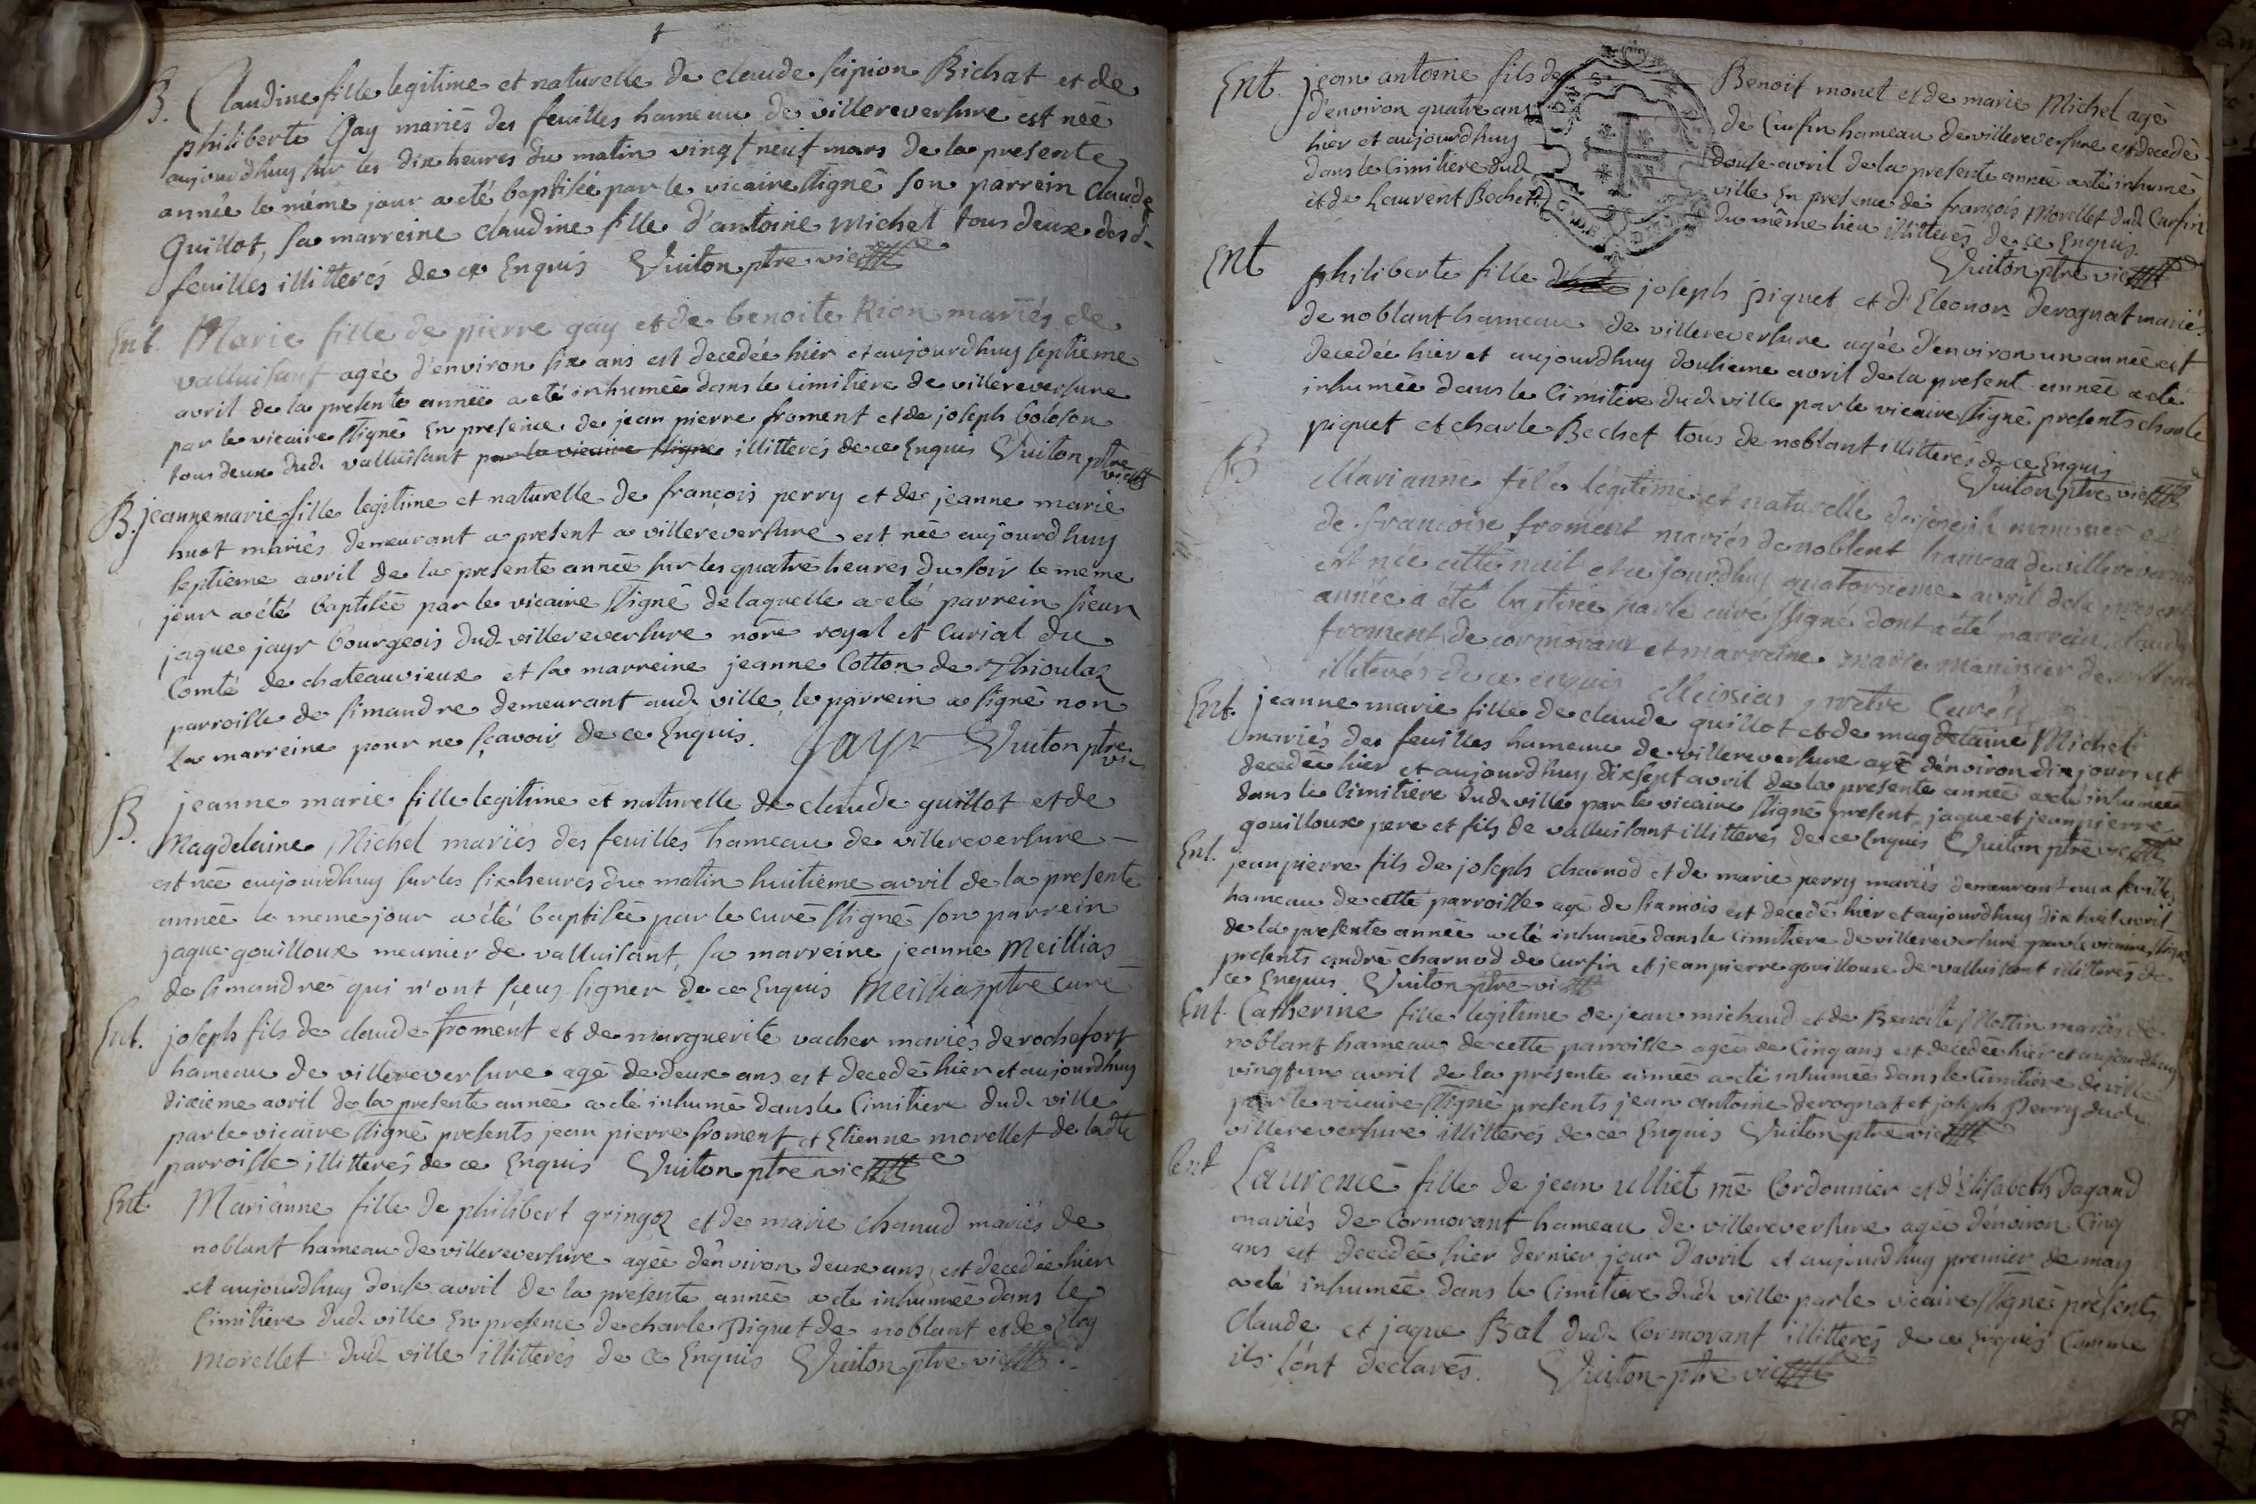 B. Claudine fille legitime et naturelle de claude scipion Bichat et de
philiberte Gay mariés des feuilles hameau de villereversure est née
aujourdhuy sur les dix heures du matin vingt neuf mars de la presente
année le méme jour a eté baptisée par le vicaire ssigné son parrein claude
Guillot, sa marreine claudine fille d'antoine michel tous deux desd.
feuilles illitterés de ce Enquis Vuiton ptre vic
Ent. Marie fille de pierre gay et de benoite Rion mariés de
valluisant agée d'environ six ans est decedée hier et aujourdhuy septieme
avril de la presente année a eté inhumée dans le cimitiere de villereversure
par le vicaire ssigné En presence de jean pierre froment et de joseph boloson
tous deux dud. valluisant par le vicaire ssigné illitterés de ce Enquis Vuiton ptre
vic
B. jeanne marie fille legitime et naturelle de françois perry et de jeanne marie
huot mariés demeurant a present a villereversure est née aujourdhuy
septieme avril de la presente année sur les quatre heures du soir le meme
jour a été baptisée par le vicaire ssigné de laquelle a eté parrein sieur
jaque jayr bourgeois dud. villereversure nore royal et Curial du
Comté de chateauvieux et sa marreine jeanne Cotton de Thioulaz
parroisse de simandre demeurant aud. ville, le parrein a signé non
La marreine pour ne sçavoir de ce Enquis. Jayr Vuiton ptre
vic
B. jeanne marie fille legitime et naturelle de claude guillot et de
Magdelaine Michel mariés des feuilles hameau de villereversure
est née aujourdhuy sur les six heures du matin huitieme avril de la presente
année le meme jour a été baptisée par le curé ssigné son parrein
jaque gouilloux meunier de valluisant, sa marreine jeanne Meillias
de simandre qui n'ont sceus signer de ce Enquis Meillias ptre curé
Ent. joseph fils de claude froment et de marguerite vacher mariés de rochefort
hameau de villereversure agé de deux ans est decedé hier et aujourdhuy
dixieme avril de la presente année a eté inhumé dans le Cimitiere dud. ville
par le vicaire ssigné presents jean pierre froment et Etienne morellet de ladte
parroisse illitterés de ce Enquis Vuiton ptre vic
Ent. Marianne fille de philibert gringoz et de marie chanud mariés de
noblant hameau de villereversure agée d'environ deux ans est decedée hier
et aujourdhuy douse avril de la presente année a eté inhumée dans le
Cimitiere dud. ville En presence de charle Piquet de noblant et de Eloy
Morellet dud. ville illitterés de ce Enquis Vuiton ptre vic
Ent. jean antoine fils de Benoit monet et de marie Michel agé
d'environ quatre ans de Curfin hameau de villereversure est decedé
hier et aujourdhuy douse avril de la presente année a eté inhumé
dans le Cimitiere dud. ville En presence de françois Morellet dud. Curfin
et de Laurent Bechet du même lieu illitterés de ce Enquis.
Vuiton ptre vic
Ent philiberte fille de joseph piquet et d'Eleonor derognat mariés
de noblant hameau de villereversure agée d'environ un année est
decedée hier et aujourdhuy dousieme avril de la present année a eté
inhumée dans le Cimitiere dud. ville par le vicaire ssigné presents charle
piquet et charle Bechet tous de noblant illitterés de ce Enquis
Vuiton ptre vic
B Marianne fille légitime et naturelle de joseph manissier et
de francoise froment mariés de noblent hameau de villereversure
est née cette nuit et aujourdhuy quatorsieme avril de la presente
année a été baptisée par le curé ssigné dont a été parrein claude
froment de cormorant et marreine marie manissier de
illiterés de ce enquis Meissias prêtre Curé
Ent. jeanne marie fille de claude guillot et de magdelaine Michel
mariés des feuilles hameau de villereversure agé d'environ dix jours est
decedée hier et aujourdhuy dixsept avril de la presente année a eté inhumée
dans le Cimitiere dud. ville par le vicaire ssigné present jaque et jean pierre
gouilloux pere et fils de valluisant illitterés de ce Enquis Vuiton ptre vic
Ent. jean pierre fils de joseph charnod et de marie perry mariés demeurant aux feuilles
hameau de cette parroisse agé de six mois est decedé hier et aujourdhuy dix huit avril
de la presente année a eté inhumé dans le Cimitiere de villereversure par le vicaire ssigné
presents andré charnod de Curfin et jean pierre gouilloux de valluisant illitterés de
ce Enquis Vuiton ptre vic
Ent. Catherine fille legitime de jean michaud et de Benoite Mottin mariés de
noblant hameau de cette parroisse agée de Cinq ans est decedée hier et aujourdhuy
vingt un avril de la présente année a eté inhumée dans le Cimitiere de ville
par le vicaire ssigné presents jean antoine derognat et joseph Perry dud.
villereversure illitterés de ce Enquis Vuiton ptre vic
Ent Laurence fille de jean ulliet me Cordonnier et d'Elisabeth dagand
mariés de Cormorant hameau de villereversure agée d'environ Cinq
ans est decedée hier dernier jour d'avril et aujourdhuy premier de may
a eté inhumée dans le Cimitiere dud. ville par le vicaire ssigné présents
Claude et jaque Bal dud. Cormorant illitterés de ce Enquis Comme
ils l'ont declarés. Vuiton ptre vic